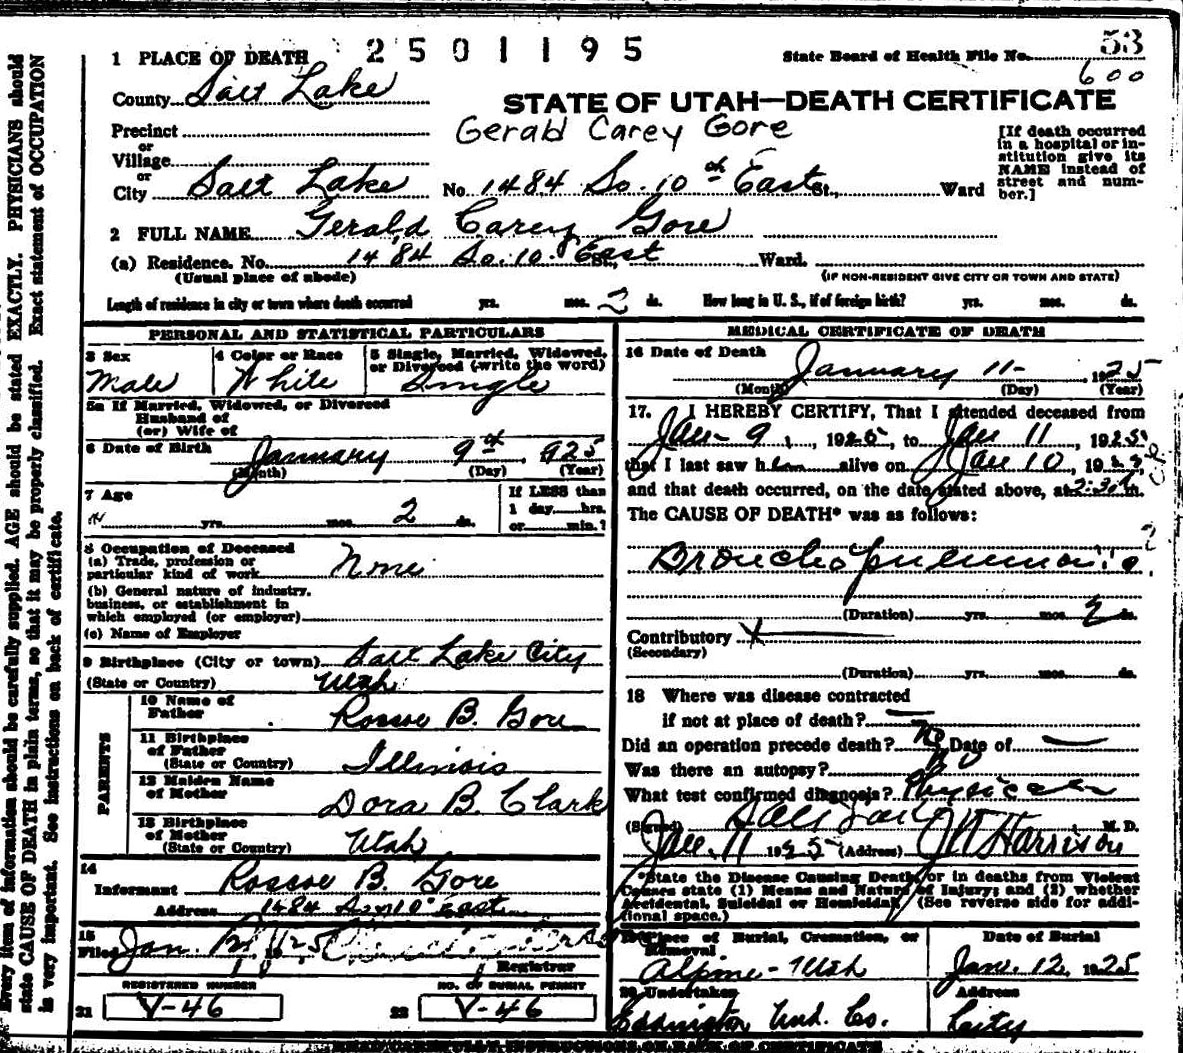 1 PLACE OF DEATH 2501195 State Board of Health File No. 53
600
County Salt Lake
STATE OF UTAH—DEATH CERTIFICATE
Precinct Gerald Carey Gore
or
Village
or
City Salt Lake No. 1484 So. 10th East St., Ward
[If death occurred
in a hospital or in-
stitution give its
NAME instead of
street and num-
ber.]
2 FULL NAME Gerald Carey Gore
(a) Residence. No. 1484 So. 10. East St., Ward.
(Usual place of abode) (IF NON-RESIDENT GIVE CITY OR TOWN AND STATE)
Length of residence in city or town where death occurred yrs. mos. 2 ds. How long in U. S., if of foreign birth? yrs. mos. ds.
PERSONAL AND STATISTICAL PARTICULARS
3 Sex
Male
4 Color or Race
White
5 Single, Married, Widowed,
or Divorced (write the word)
Single
5a If Married, Widowed, or Divorced
Husband of
(or) Wife of
6 Date of Birth January 9th, 925
(Month) (Day) (Year)
7 Age
yrs. mos. 2 ds.
If LESS than
1 day hrs.
or min.?
8 Occupation of Deceased
(a) Trade, profession or
particular kind of work None
(b) General nature of industry,
business, or establishment in
which employed (or employer)
(c) Name of Employer
9 Birthplace (City or town) Salt Lake City
(State or Country) Utah
PARENTS
10 Name of
Father Roscoe B. Gore
11 Birthplace
of Father
(State or Country) Illinois
12 Maiden Name
of Mother Dora B. Clark
13 Birthplace
of Mother
(State or Country) Utah
14
Informant Roscoe B. Gore
Address 1484 So 10 East
15
Filed Jan. 25
Registrar
REGISTERED NUMBER NO. OF BURIAL PERMIT
21 V-46 22 V-46
MEDICAL CERTIFICATE OF DEATH
16 Date of Death January 11-, 1925
(Month) (Day) (Year)
17. I HEREBY CERTIFY, That I attended deceased from
Jan- 9, 1925, to Jan 11, 1925
that I last saw him alive on Jan 10, 192
and that death occurred, on the date stated above, at 2:30 m.
The CAUSE OF DEATH* was as follows:
Broncho pneumonia
(Duration) yrs. mos. 2 ds.
Contributory
(Secondary)
(Duration) yrs. mos. ds.
18 Where was disease contracted
if not at place of death?
Did an operation precede death? No Date of
Was there an autopsy? No
What test confirmed diagnosis? Physical
(Signed) M. D.
Jan. 11 1925 (Address) J N Harrison
*State the Disease Causing Death, or in deaths from Violent
Causes state (1) Means and Nature of Injury; and (2) whether
Accidental, Suicidal or Homicidal. (See reverse side for addi-
tional space.)
19 Place of Burial, Cremation, or
Removal
Alpine-Utah
Date of Burial
Jan. 12, 1925
20 Undertaker
Eddington Und. Co.
Address
City
Every item of information should be carefully supplied. AGE should be stated EXACTLY. PHYSICIANS should
state CAUSE OF DEATH in plain terms, so that it may be properly classified. Exact statement of OCCUPATION
is very important. See instructions on back of certificate.